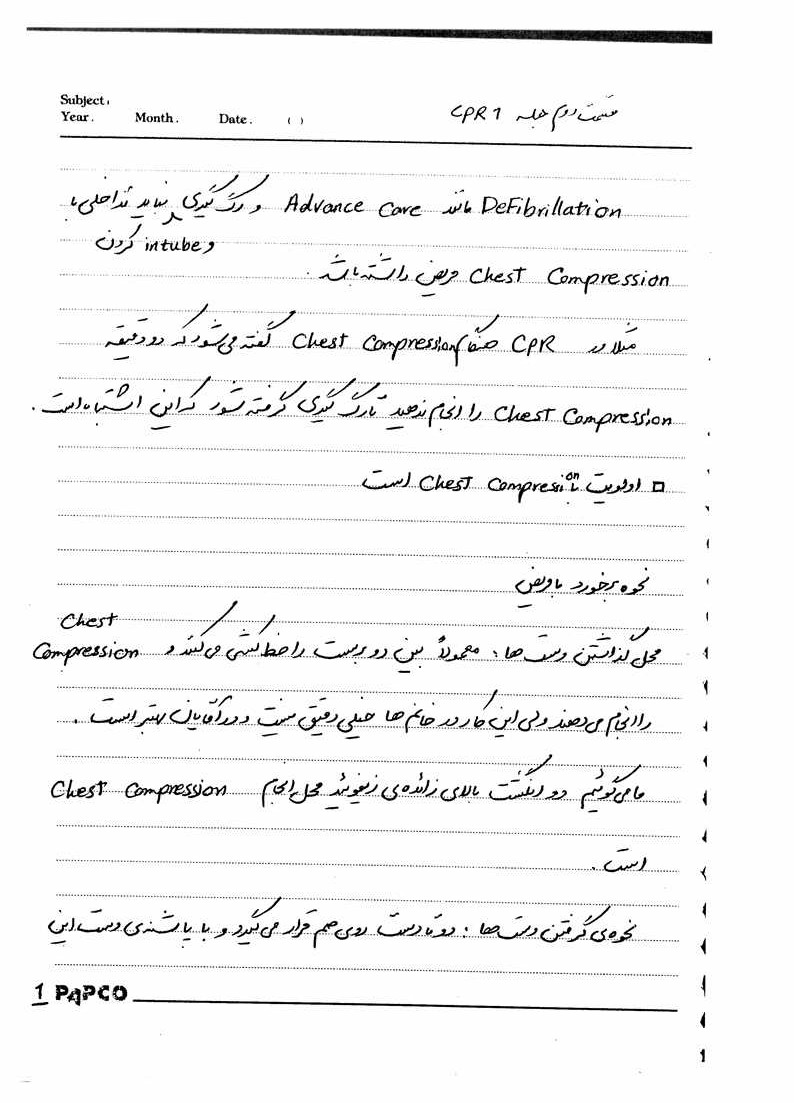 Subject:
Year. Month. Date. ( )
قسمت دوم جلسه CPR 1
Advance Care مانند DeFibrillation و رگ گیری نباید تداخلی با
و intube کردن
Chest Compression مریض داشته باشد.
مثلا در CPR هنگام Chest Compression گفته می‌شود که دو دقیقه
Chest Compression را انجام ندهید تا رگ گیری گرفته شود که این اشتباه است.
□ اولویت با Chest Compression است
نحوه برخورد با مریض
محل گذاشتن دست ها: معمولاً بین دو برست را خط کشی می‌کنند و Chest Compression
را انجام می دهند ولی این کار در خانم ها خیلی دقیق نیست و در آقایان بهتر است.
ما می‌گوئیم دو انگشت بالای زائده‌ی زیفوئید محل انجام Chest Compression
است.
نحوه‌ی گرفتن دست ها: دو تا دست روی هم قرار می‌گیرد و با پاشنه‌ی دست این
1 PAPCO
1